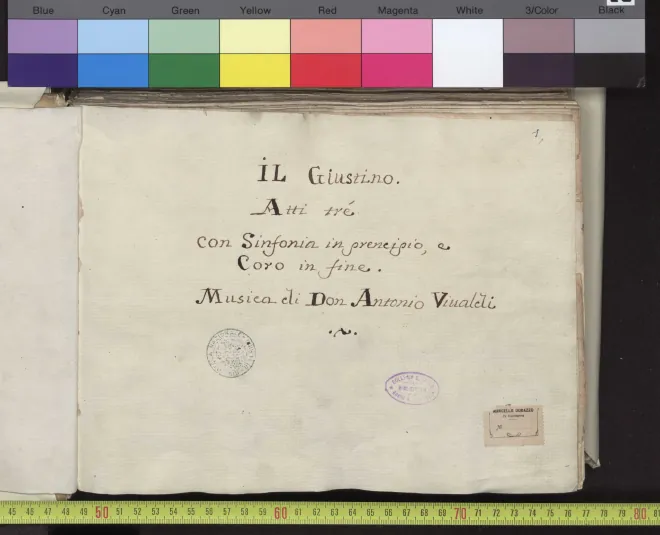 Blue Cyan Green Yellow Red Magenta White 3/Color Black
1,
iL Giustino.
Atti tré
con Sinfonia in prencipio, e
Coro in fine.
Musica di Don Antonio Viualdi
45 46 47 48 49 50 51 52 53 54 55 56 57 58 59 60 61 62 63 64 65 66 67 68 69 70 71 72 73 74 75 76 77 78 79 80 81